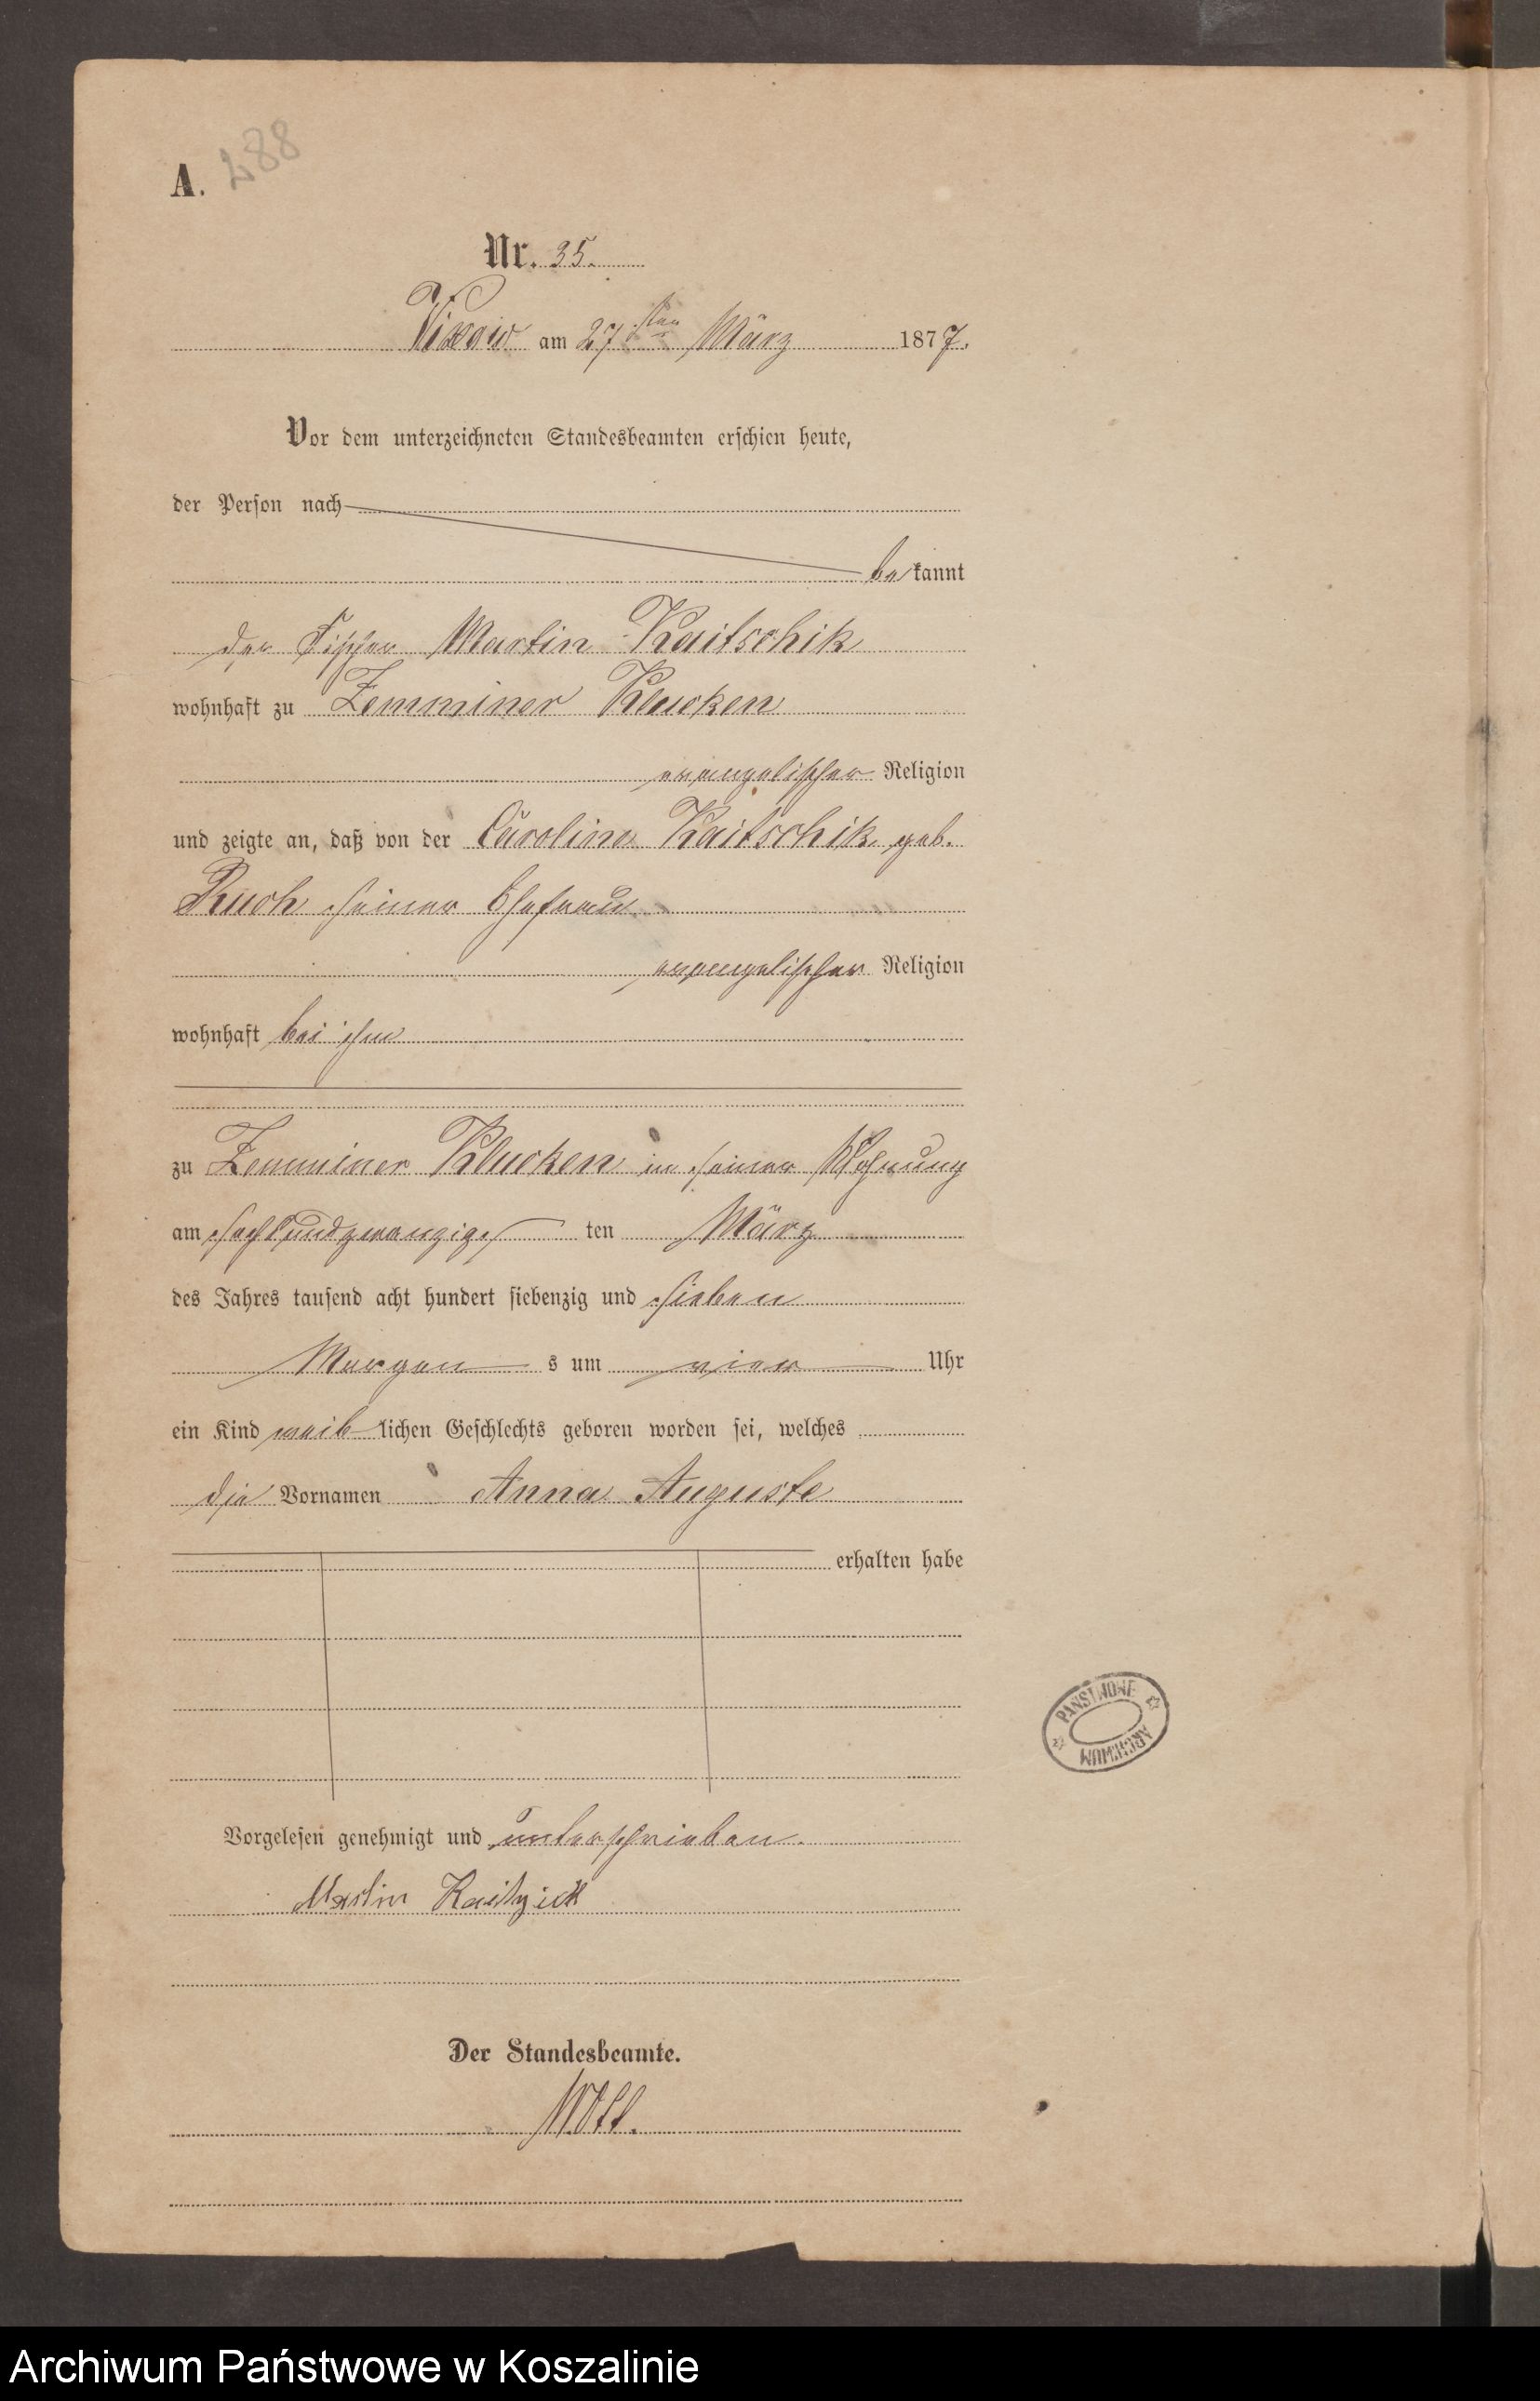 A. 288
Nr. 35.
Vixow am 27sten März 1877.
Vor dem unterzeichneten Standesbeamten erschien heute,
der Person nach
bekannt
der Fischer Martin Kaitschik
wohnhaft zu Zemminer Klucken
evangelischer Religion
und zeigte an, daß von der Caroline Kaitschik geb.
Ruch seiner Ehefrau
evangelischer Religion
wohnhaft bei ihm
zu Zemminer Klucken in seiner Wohnung
am sechsundzwanzigs ten März
des Jahres tausend acht hundert siebenzig und sieben
Morgen s um vier Uhr
ein Kind weiblichen Geschlechts geboren worden sei, welches
die Vornamen Anna Auguste
erhalten habe
Vorgelesen genehmigt und unterschrieben.
Martin Kaitzick
Der Standesbeamte.
PAŃSTWOWE
ARCHIWUM
Archiwum Państwowe w Koszalinie